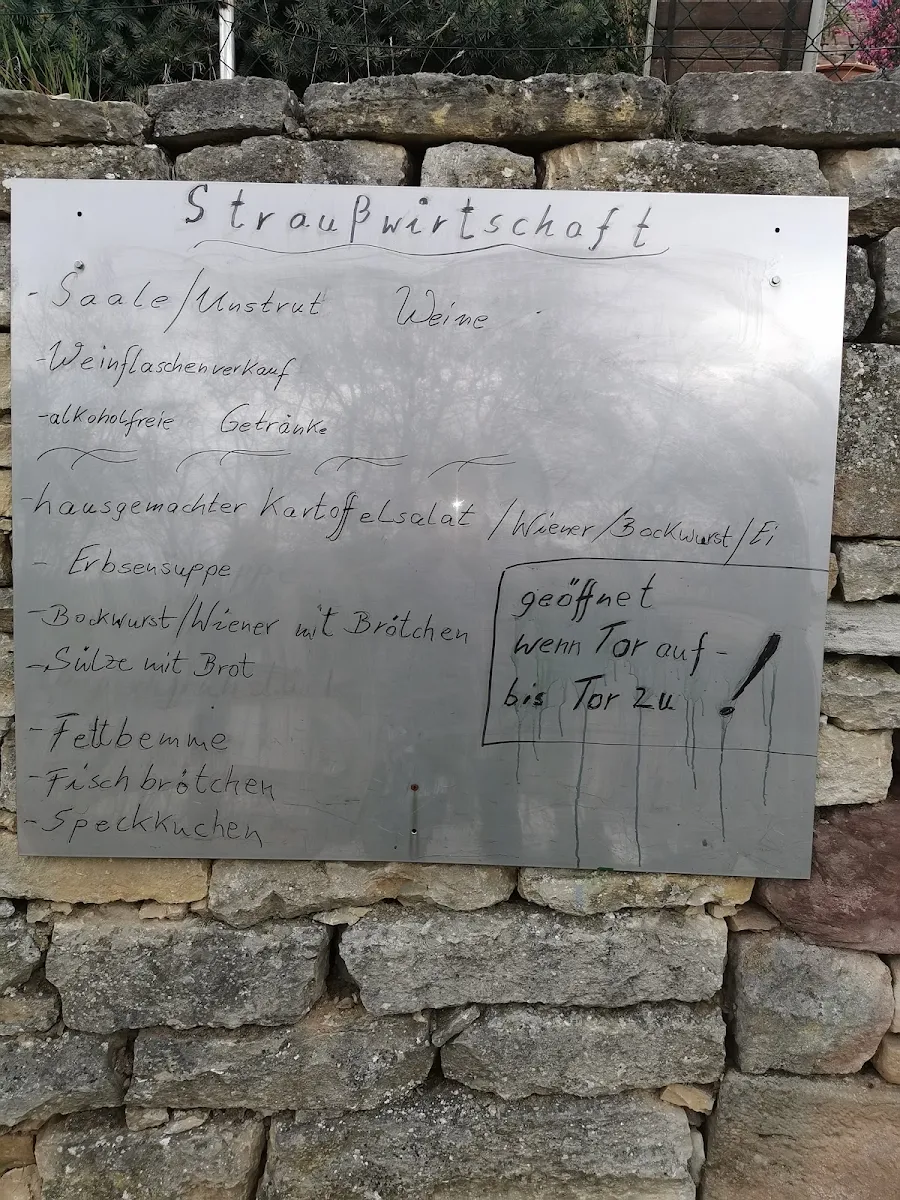 Straußwirtschaft
- Saale/Unstrut Weine
- Weinflaschenverkauf
- alkoholfreie Getränke
- hausgemachter Kartoffelsalat /Wiener/Bockwurst/Ei
- Erbsensuppe
- Bockwurst/Wiener mit Brötchen
- Sülze mit Brot
- Fettbemme
- Fischbrötchen
- Speckkuchen
geöffnet
wenn Tor auf -
bis Tor zu !